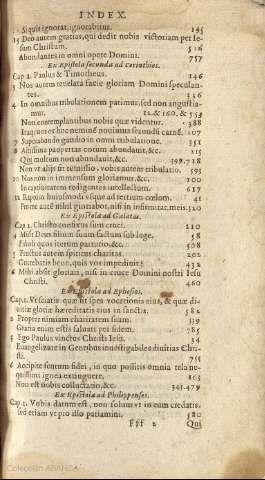 INDEX.
Si quis ignorat, ignorabitur. 195
15 Deo autem gratias, qui dedit nobis victoriam per Ie-
sum Christum. 516
Abundantes in omni opere Domini. 757
Ex Epistola secunda ad Corinthios.
Cap 1. Paulus & Timotheus. 146
3 Nos autem reuelata facie gloriam Domini speculan-
tes. 526
4 In omnibus tribulationem patimur, sed non angustia-
mur. 12. &160. & 553
Non contemplantibus nobis quæ videntur. 388
Itaque ex hoc neminé nouimus secundū carné. 107
Superabundo gaudio in omni tribulatione. 351
8 Altissima paupertas eorum abundauit, &c. 115
Qui multum non abundauit, &c. 398.718
Non vt alijs sit remissio, vobis autem tribulatio. 595
10 Nos non in immensum gloriamur, &c. 100
In captiuitatem redigentes intellectum. 617
12 Raptum huiusmodi vsque ad tertium cœlum. 41
Pro me autē nihil gloriabor, nisi in infirmitat. meis. 520
Ex Epistola ad Galatas.
Cap 2. Christo confixus sum cruci. 110
4 Misit Deus filium suum factum sub lege, 58
Filioli quos iterum parturio, &c. 508
5 Fructus autem spiritus charitas. 202
Currebatis bene, quis vos impediuit? 432
6 Mihi absit gloriari, nisi in cruce Domini nostri Iesu
Christi. 460
Ex Epistola ad Ephesios.
Cap. 1. Vt sciatis quæ sit spes vocationis eius, & quæ di-
uitiæ gloriæ hæreditatis eius in sanctis. 582
2 Propter nimiam charitatem suam. 339
Gratia enim estis saluati per fidem. 785
3 Ego Paulus vinctus Christi Iesu. 34
Euangelizare in Gentibus inuestigabiles diuitias Chri-
sti. 755
6 Accipite scutum fidei, in quo possitis omnia tela ne-
quissimi ignea extinguere. 863
Non est nobis colluctatio, &c. 341.479
Ex Epistola ad Philippenses.
Cap. 1. Vobis datum est, non solum vt in eum credatis,
sed etiam vt pro illo patiamini. 580
Fff 2 Qui
Colección ABANZA